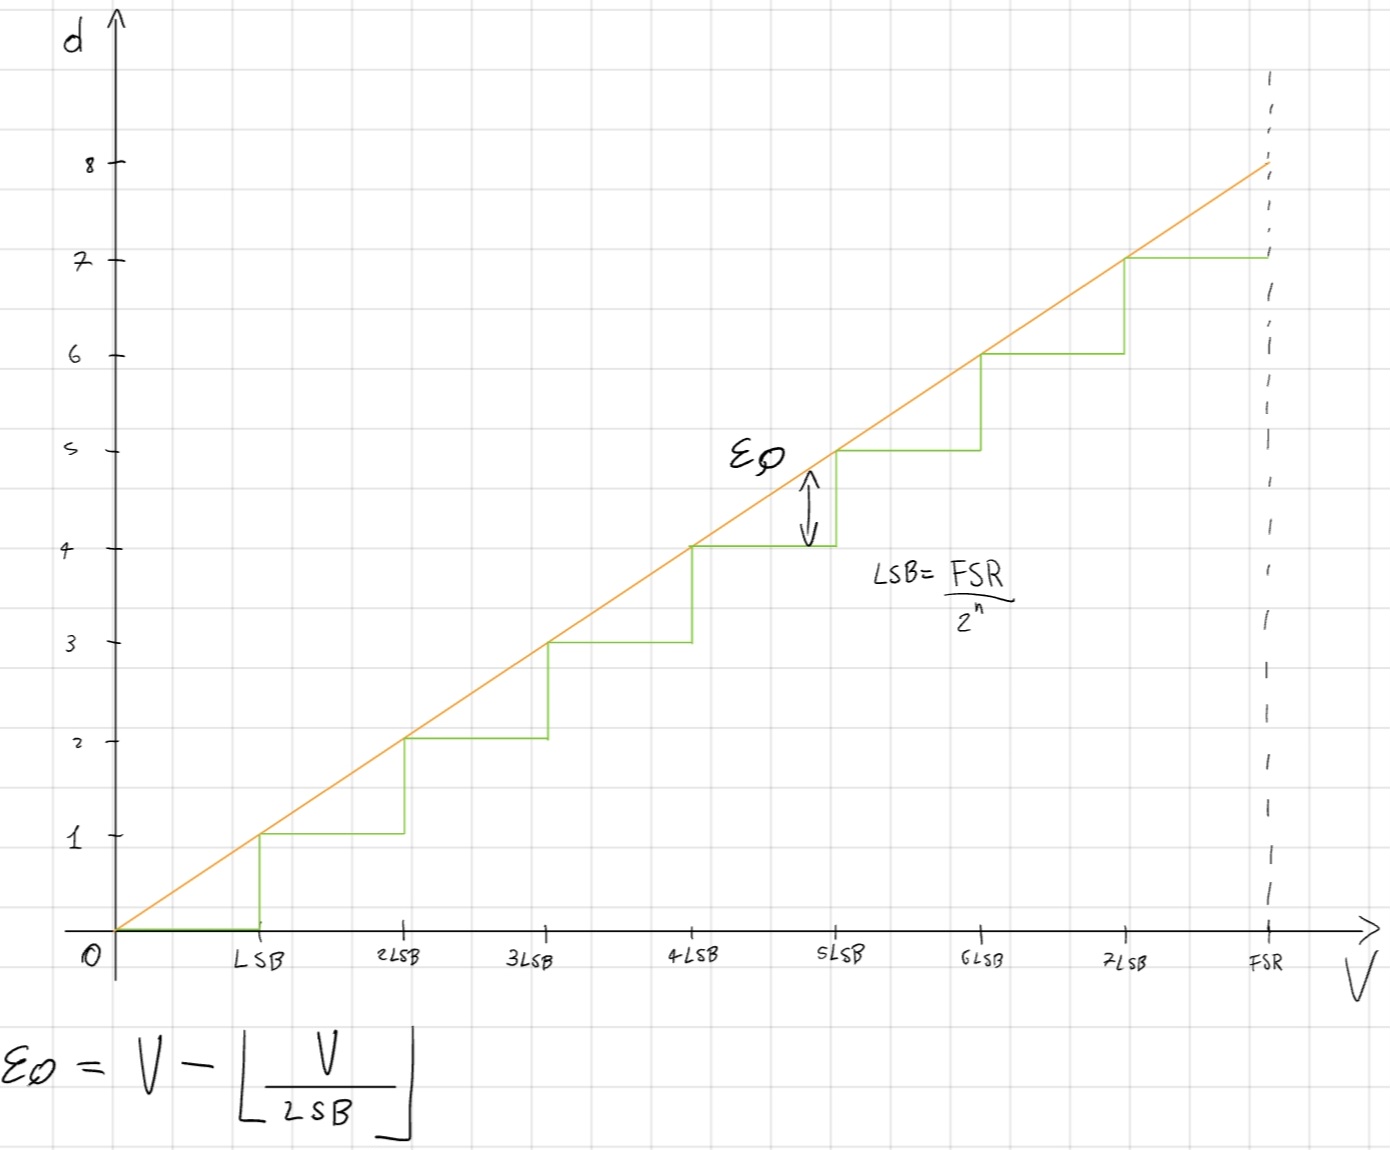 d
8
7
6
5
4
3
2
1
εQ
LSB = FSR / 2ⁿ
0 LSB 2LSB 3LSB 4LSB 5LSB 6LSB 7LSB FSR
V
εQ = V - ⌊ V / LSB ⌋